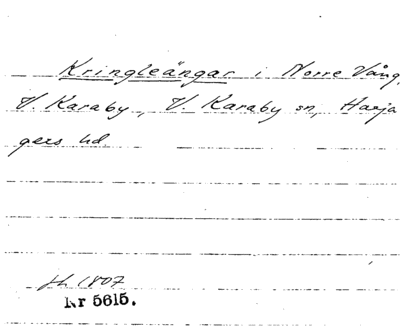 Kringleängar i Norre Vång,
V. Karaby, V. Karaby sn, Harja
gers hd
fh 1807
Nr 5615.